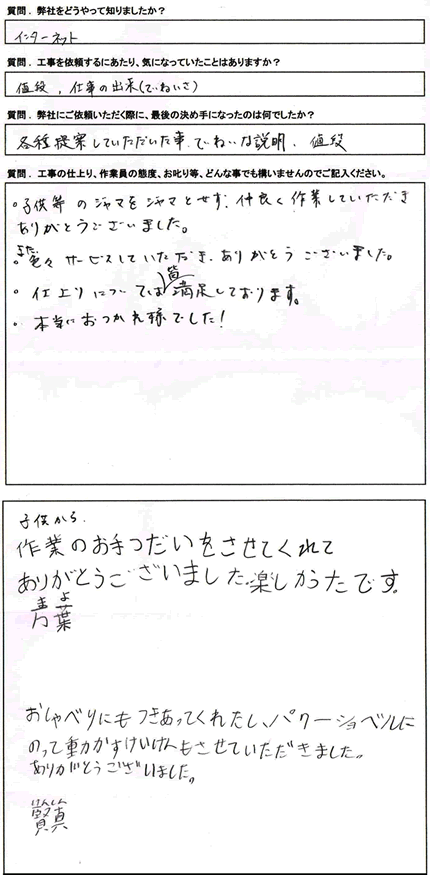 質問．弊社をどうやって知りましたか？
インターネット
質問．工事を依頼するにあたり、気になっていたことはありますか？
値段，仕事の出来(ていねいさ)
質問．弊社にご依頼いただく際に、最後の決め手になったのは何でしたか？
各種提案していただいた事．ていねいな説明、値段
質問．工事の仕上り、作業員の態度、お叱り等、どんな事でも構いませんのでご記入ください。
・子供等のジャマをジャマとせず、仲良く作業していただき
ありがとうございました。
・色々サービスしていただき、ありがとうございました。
・仕上りについては皆満足しております。
・本当におつかれ様でした！
子供から．
作業のお手つだいをさせてくれて
ありがとうございました。楽しかったです。
青葉
おしゃべりにもつきあってくれたし、パワーショベルに
のって重かかすけいけんもさせていただきました。
ありがとうございました。
賢真